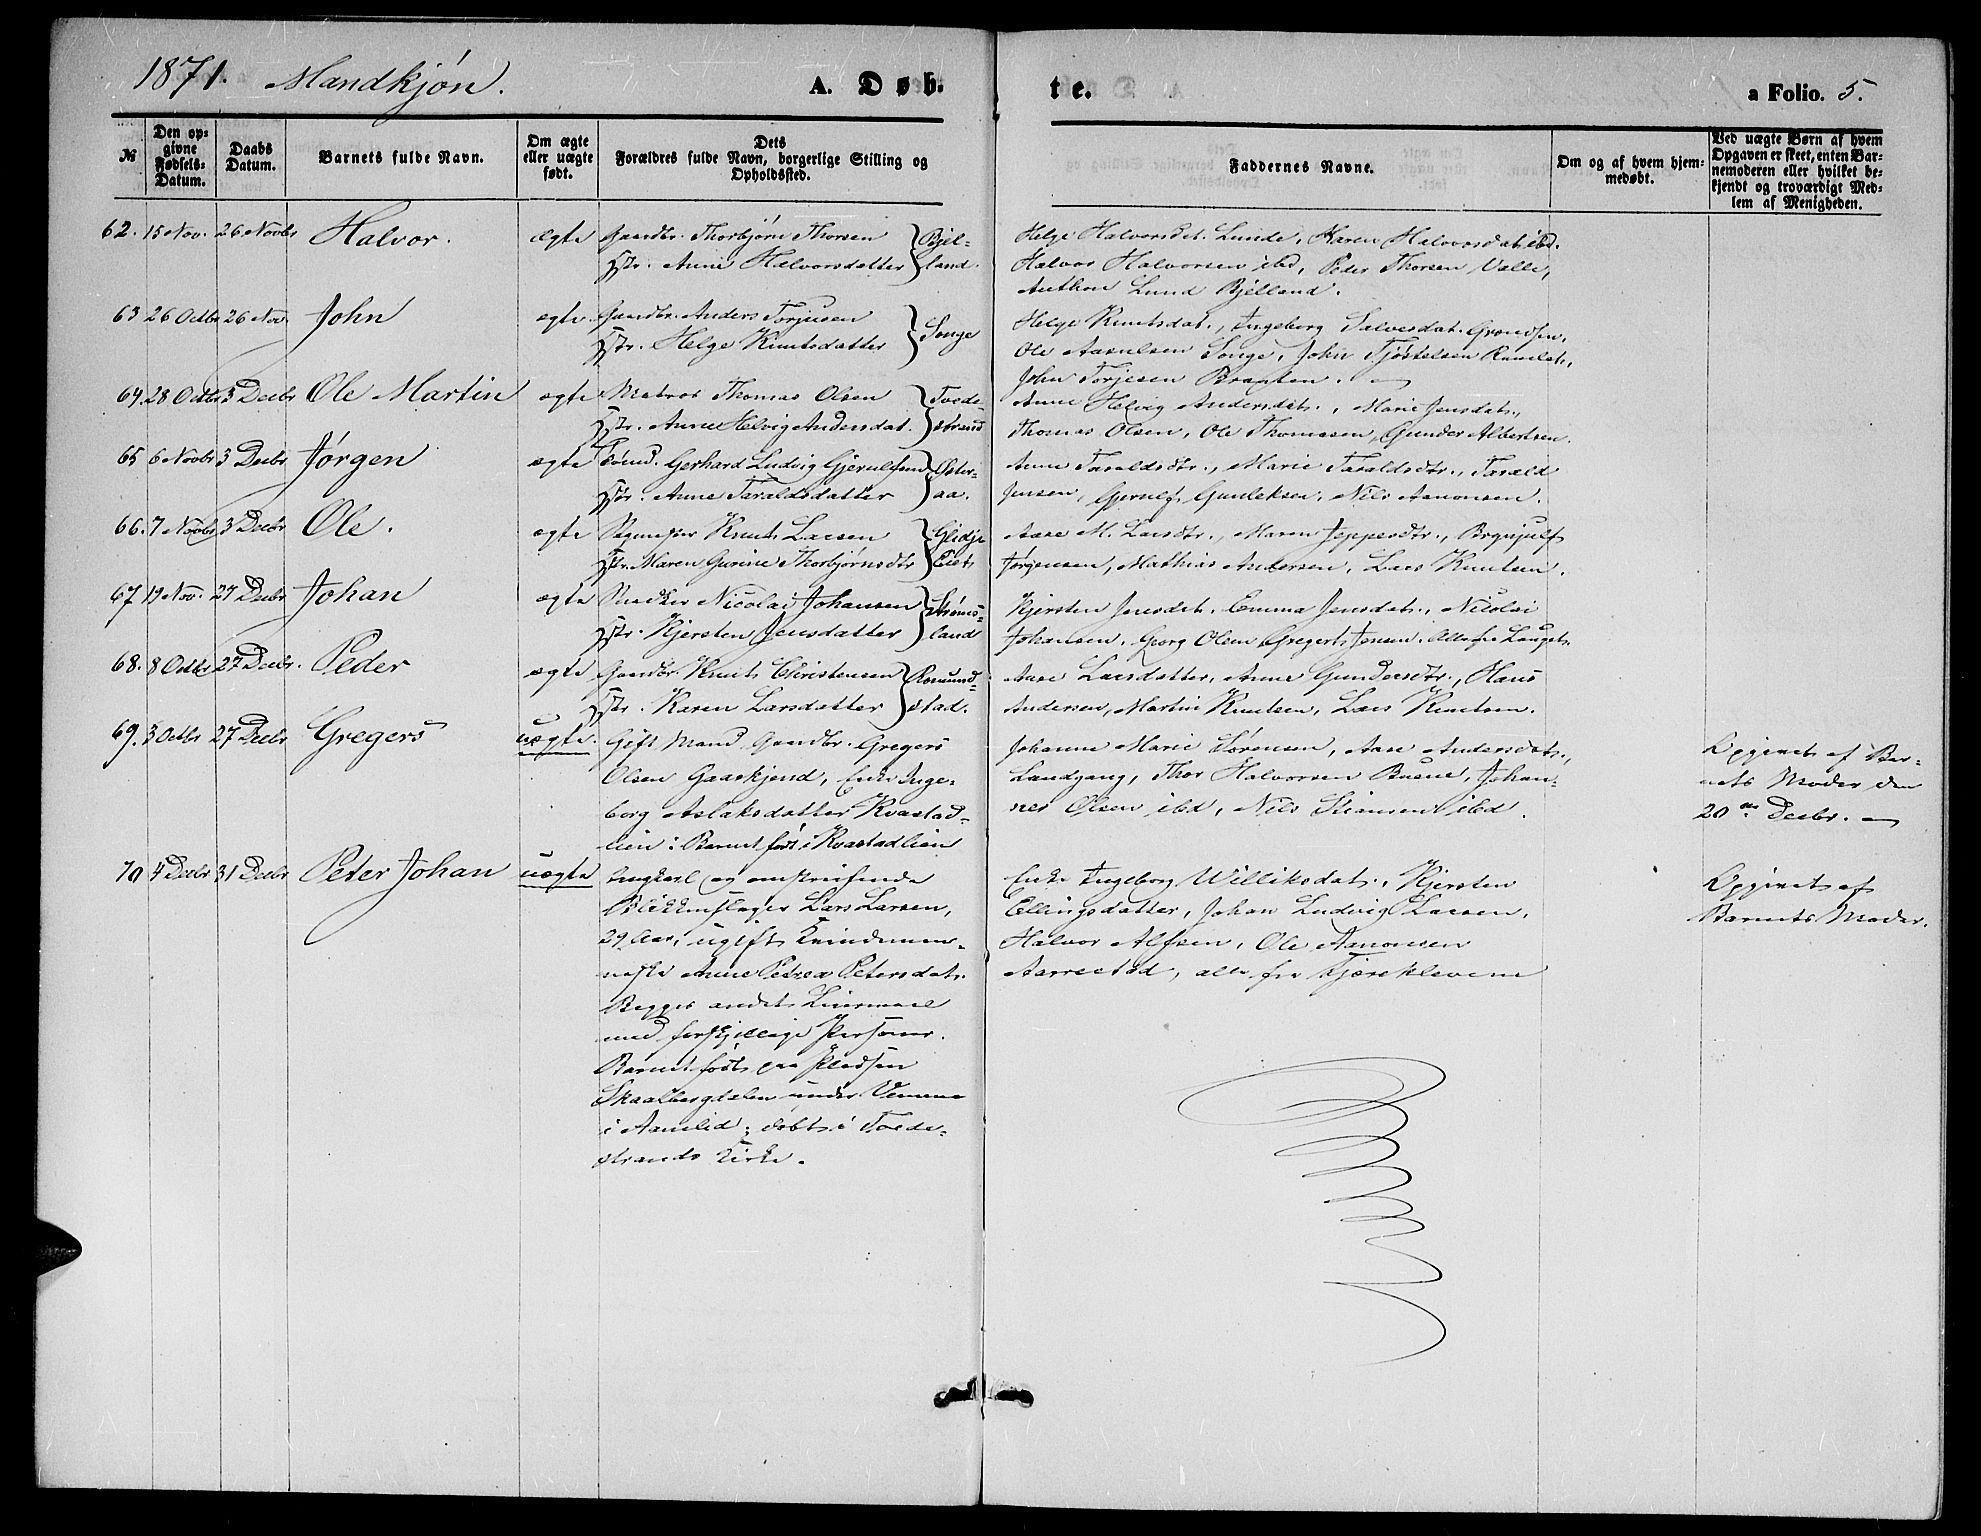 1871. Mandkjøn.
A. Døb-
te.
a Folio. 5.
№
Den op-
givne
Fødsels-
Datum.
Daabs
Datum.
Barnets fulde Navn.
Om ægte
eller uægte
født.
Dets
Forældres fulde Navn, borgerlige Stilling og
Opholdssted.
Faddernes Navne.
Om og af hvem hjem-
medøbt.
Ved uægte Børn af hvem
Opgaven er skeet, enten Bar-
nemoderen eller hvilket be-
kjendt og troværdigt Med-
lem af Menigheden.
62. 15 Nov. 26 Novbr Halvor. ægte Gaardbr. Thorbjørn Thorsen Bjel-
Hstr. Anne Halvorsdatter land.
Helge Halvorsdat. Lunde, Karen Halvorsdat. ibd.
Halvor Halvorsen ibd, Peder Thorsen Valle,
Anthon Lund Bjelland.
63 26 Octbr 26 Nov. John ægte. Gaardbr. Anders Torjusen Songe
Hstr. Helge Knutsdatter
Helge Knutsdat., Ingeborg Salvesdat.
Ole Aanulsen Songe, John Tjøstelsen
John Torjesen
64. 28 Octbr 3 Decbr Ole Martin ægte Matros Thomas Olsen Tvede-
Hstr. Anne Helvig Andersdat. strand
Anne Helvig Andersdat., Marie Jensdat.,
Thomas Olsen, Ole Thomesen, Gunder Albertsen.
65 6 Novbr 3 Decbr Jørgen ægte Gerhard Ludvig Gjerulfsen Øster-
Hstr. Anne Taraldsdatter aa.
Anne Taraldsdtr., Marie Taraldsdtr., Tarald
Jensen, Gjerulf Gunleksen, Nils Aanonsen.
66. 7 Novbr 3 Decbr Ole. ægte Knut Larsen Glidje
Hstr. Maren Gurine Thorbjørnsdtr Eiet.
Aase M. Larsdtr., Maren Jeppesdtr., Brynjulf
Jørgensen, Mathias Andersen, Lars Knutsen.
67 19 Nov. 27 Decbr Johan ægte Snedker Nicolai Johansen Strøms-
Hstr. Kjersten Jensdatter land
Kjersten Jensdat. Emma Jensdat., Nicolai
Johansen, Georg Olsen Gregert Jensen. Alle fra
68. 8 Octbr 27 Decbr. Peder ægte Gaardbr. Knut Christensen Rømund-
Hstr. Karen Larsdatter stad.
Aase Larsdatter, Anne Gundersdtr., Hans
Andersen, Martin Knutsen, Lars Knutsen.
69. 5 Octbr 27 Decbr Gregers uægte. Gift Mand Gaardbr. Gregers
Olsen Gaaskjend, Enke Inge-
borg Aslaksdatter Kvastad-
lien: Barnet født i Kvastadlien
Johanne Marie Sørensen, Aase Andersdat.,
Landgang, Thor Halvorsen Buene, Johan-
nes Olsen ibd, Nils Stiansen ibd.
Opgivet af Bar-
nets Moder den
20de Decbr.
70 4 Decbr 31 Decbr Peter Johan uægte Ungkarl og omstreifende
Blikkenslager Lars Larsen,
29 Aar, ugift Kvindemen-
neske Anne Petrea Petersdat.
Begges andet Leiermaal
med forskjellige Personer.
Barnet født paa Pladsen
Skaalbergdalen under Vemme
i Aamlid; døbt i Tvede-
strands Kirke.
Enke Ingeborg Williksdat., Kjersten
Ellingsdatter, Johan Ludvig Larsen,
Halvor Alfsen, Ole Aanonsen
Aarrestad, alle fra Tjæreklevene
Opgivet af
Barnets Moder.